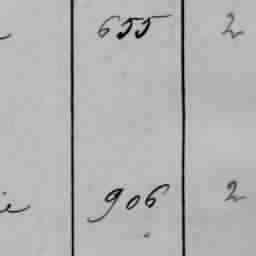 655 2
906 2